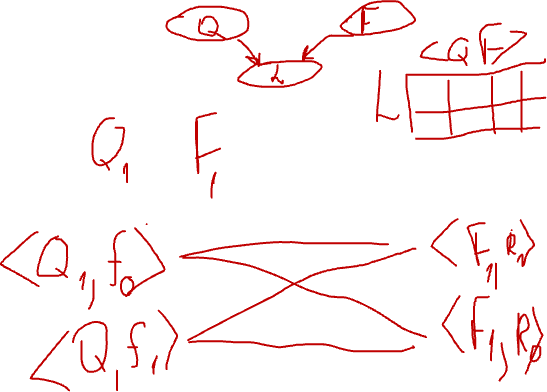 Q F
L
<Q F>
L
Q₁ F₁
<Q₁, f₀> <F₁, R₁>
<Q₁ f₁> <F₁, R₀>